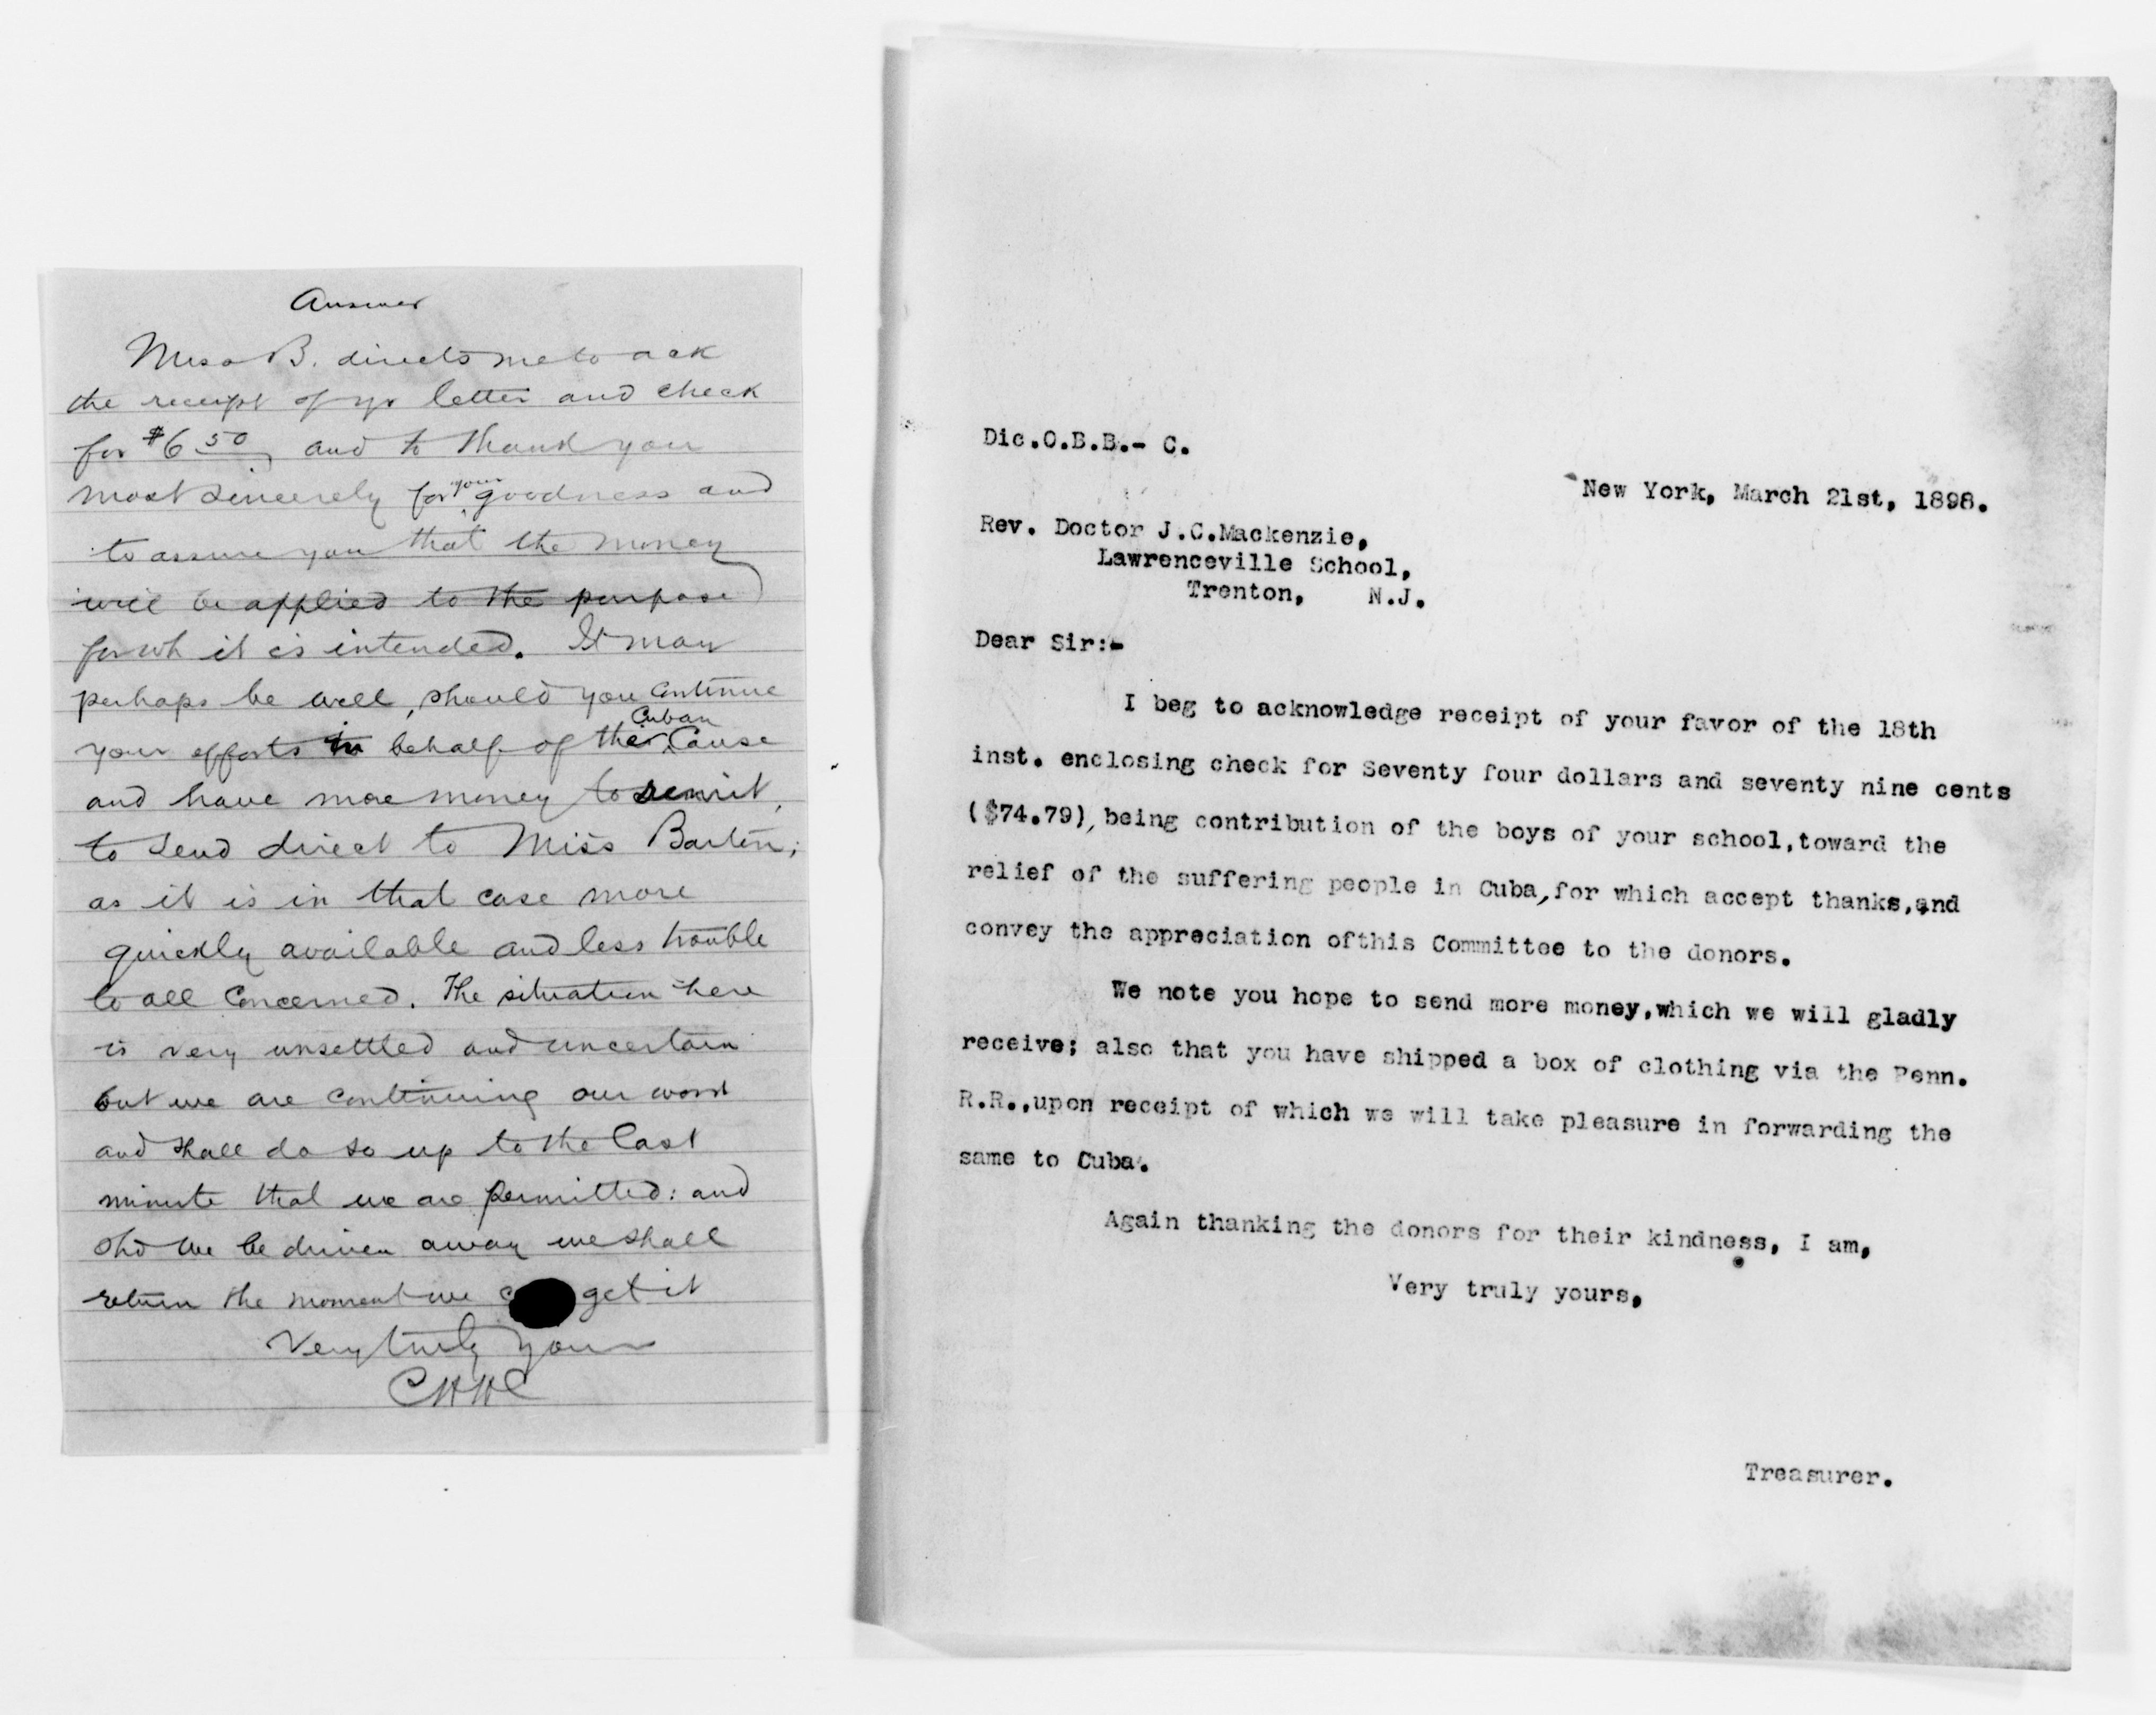 Answer
Miss B. directs me to ack
the receipt of yr letter and check
for $6 50, and to thank you
most sincerely for your goodness and
to assure you that the money
will be applied to the purpose
for wh it is intended. It may
perhaps be well, should you continue
your efforts in behalf of the Cuban Cause
and have more money to remit,
to send direct to Miss Barton;
as it is in that case more
quickly available and less trouble
to all concerned. The situation here
is very unsettled and uncertain
but we are continuing our work
and shall do so up to the last
minute that we are permitted: and
shd we be driven away we shall
return the moment we get it
Very truly yours
CHHC
Dic.O.B.B.- C.
New York, March 21st, 1898.
Rev. Doctor J.C.Mackenzie,
Lawrenceville School,
Trenton, N.J.
Dear Sir:-
I beg to acknowledge receipt of your favor of the 18th
inst. enclosing check for Seventy four dollars and seventy nine cents
($74.79), being contribution of the boys of your school,toward the
relief of the suffering people in Cuba, for which accept thanks,and
convey the appreciation ofthis Committee to the donors.
We note you hope to send more money,which we will gladly
receive; also that you have shipped a box of clothing via the Penn.
R.R.,upon receipt of which we will take pleasure in forwarding the
same to Cuba.
Again thanking the donors for their kindness, I am,
Very truly yours,
Treasurer.